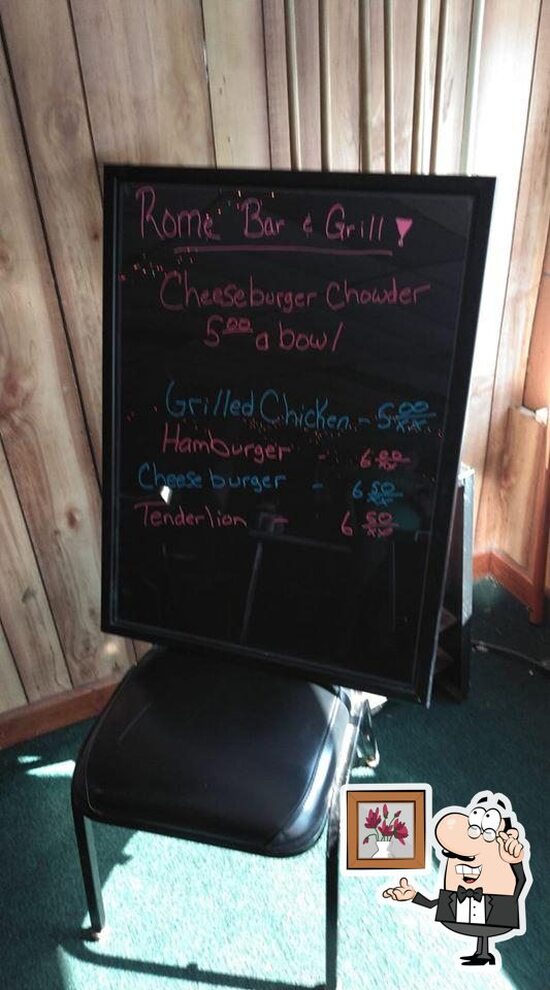 Rome Bar & Grill
Cheeseburger Chowder
5 00 a bowl
Grilled Chicken - 5 00/xx
Hamburger - 6 00/xx
Cheeseburger - 6 50/xx
Tenderlion - 6 50/xx